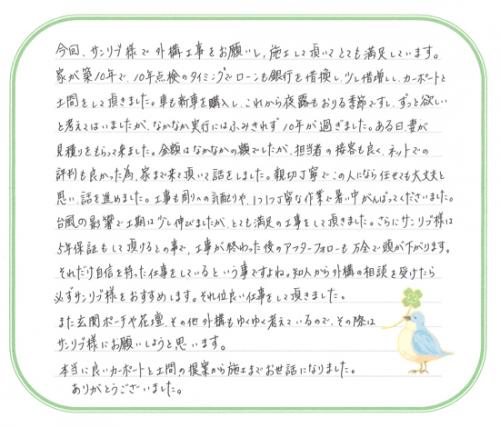 今回、サンリブ様で外構工事をお願いし、施工して頂いてとても満足しています。
家が築10年で、10年点検のタイミングでローンも銀行を借換し、少し借増し、カーポートと
土間をして頂きました。車も新車を購入し、これから夜露もおりる季節ですし、ずっと欲しい
と考えてはいましたが、なかなか実行にはふみきれず10年が過ぎました。ある日、妻が
見積りをもらって来ました。金額はなかなかの額でしたが、担当者の接客も良く、ネットでの
評判も良かった為、家まで来て頂いて話をしました。親切丁寧でこの人になら任せても大丈夫と
思い、話を進めました。工事も周りへの気配りや、1つ1つ丁寧な作業で暑い中がんばってくださいました。
台風の影響で工期は少し伸びましたが、とても満足の工事をして頂きました。さらにサンリブ様は
5年保証もして頂けるとの事で、工事が終わった後のアフターフォローも万全で頭が下がります。
それだけ自信を持った仕事をしているという事ですよね。知人から外構の相談を受けたら
必ずサンリブ様をおすすめします。それ位良い仕事をして頂きました。
また玄関ポーチや花壇、その他外構もゆくゆく考えているので、その際は
サンリブ様にお願いしようと思います。
本当に良いカーポートと土間の提案から施工までお世話になりました。
ありがとうございました。